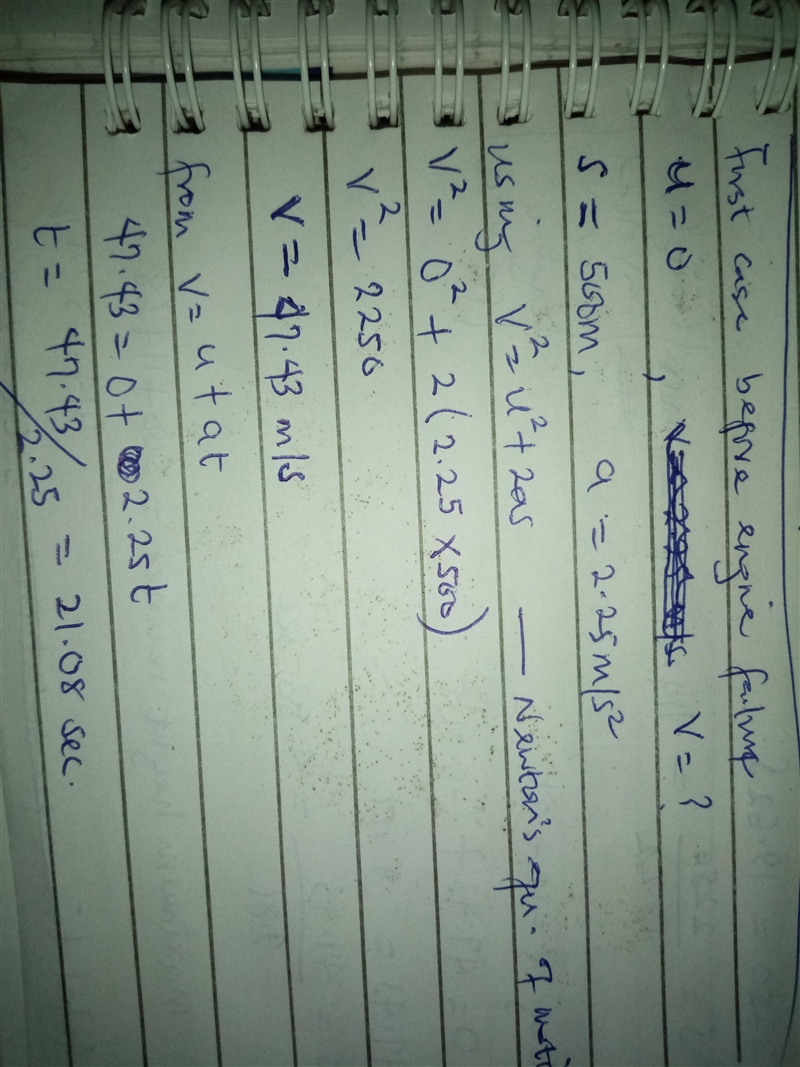 First case before engine failure
u = 0 , V = ?
S = 500m, a = 2.25m/s²
using V² = u² + 2as — Newton's equ. of moti
V² = 0² + 2(2.25 × 500)
V² = 2250
V = 47.43 m/s
from V = u + at
47.43 = 0 + 2.25t
t = 47.43/2.25 = 21.08 sec.